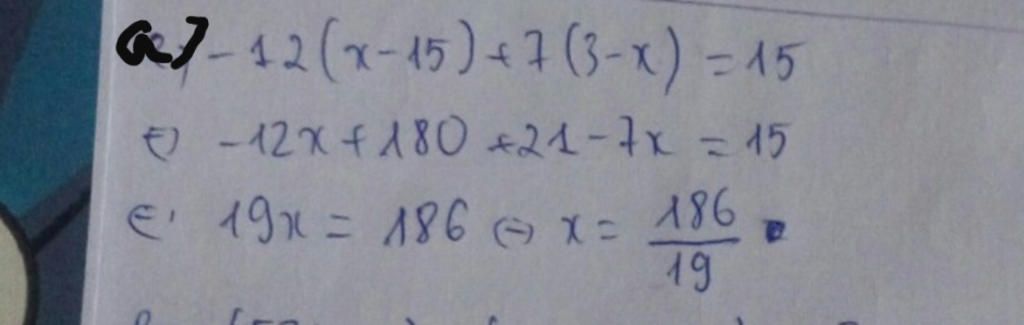 a) -12(x-15)+7(3-x) = 15
⇔ -12x+180+21-7x = 15
⇔ 19x = 186 ⇔ x = 186/19